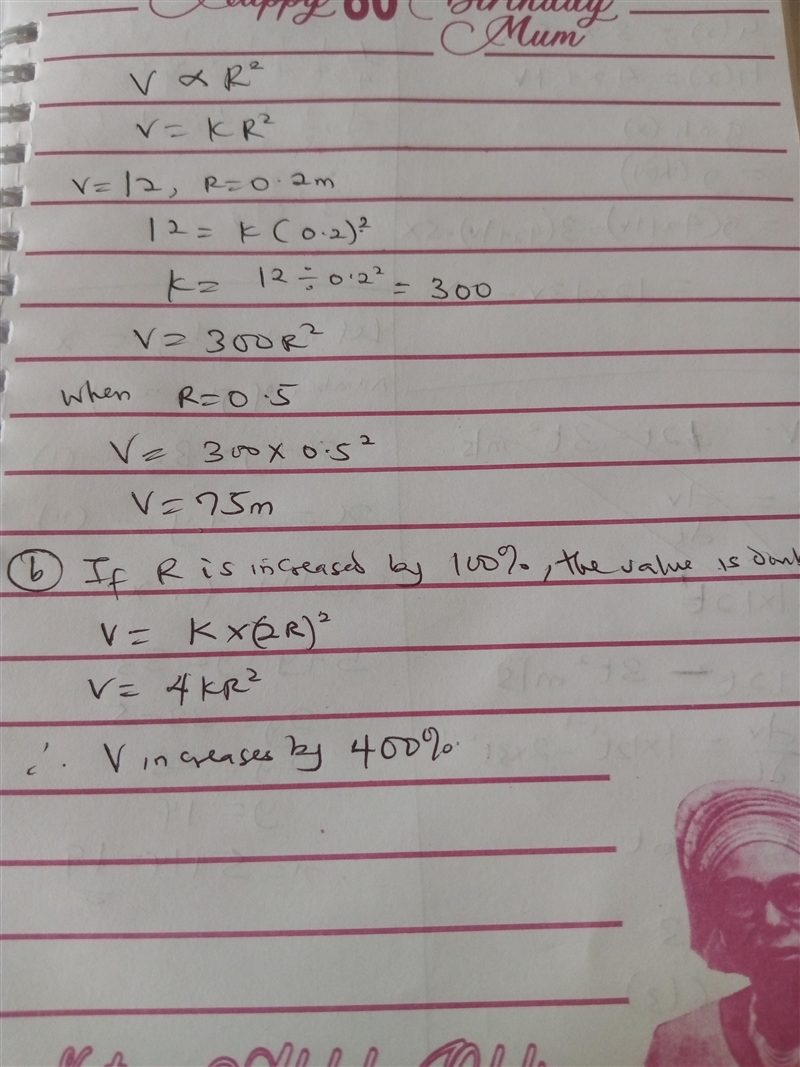 Happy 60 Birthday
Mum
V ∝ R²
V = KR²
V = 12, R = 0.2m
12 = K (0.2)²
K = 12 ÷ 0.2² = 300
V = 300R²
When R = 0.5
V = 300 × 0.5²
V = 75m
(b) If R is increased by 100%, the value is doub
V = K × (2R)²
V = 4KR²
∴ V increases by 400%.